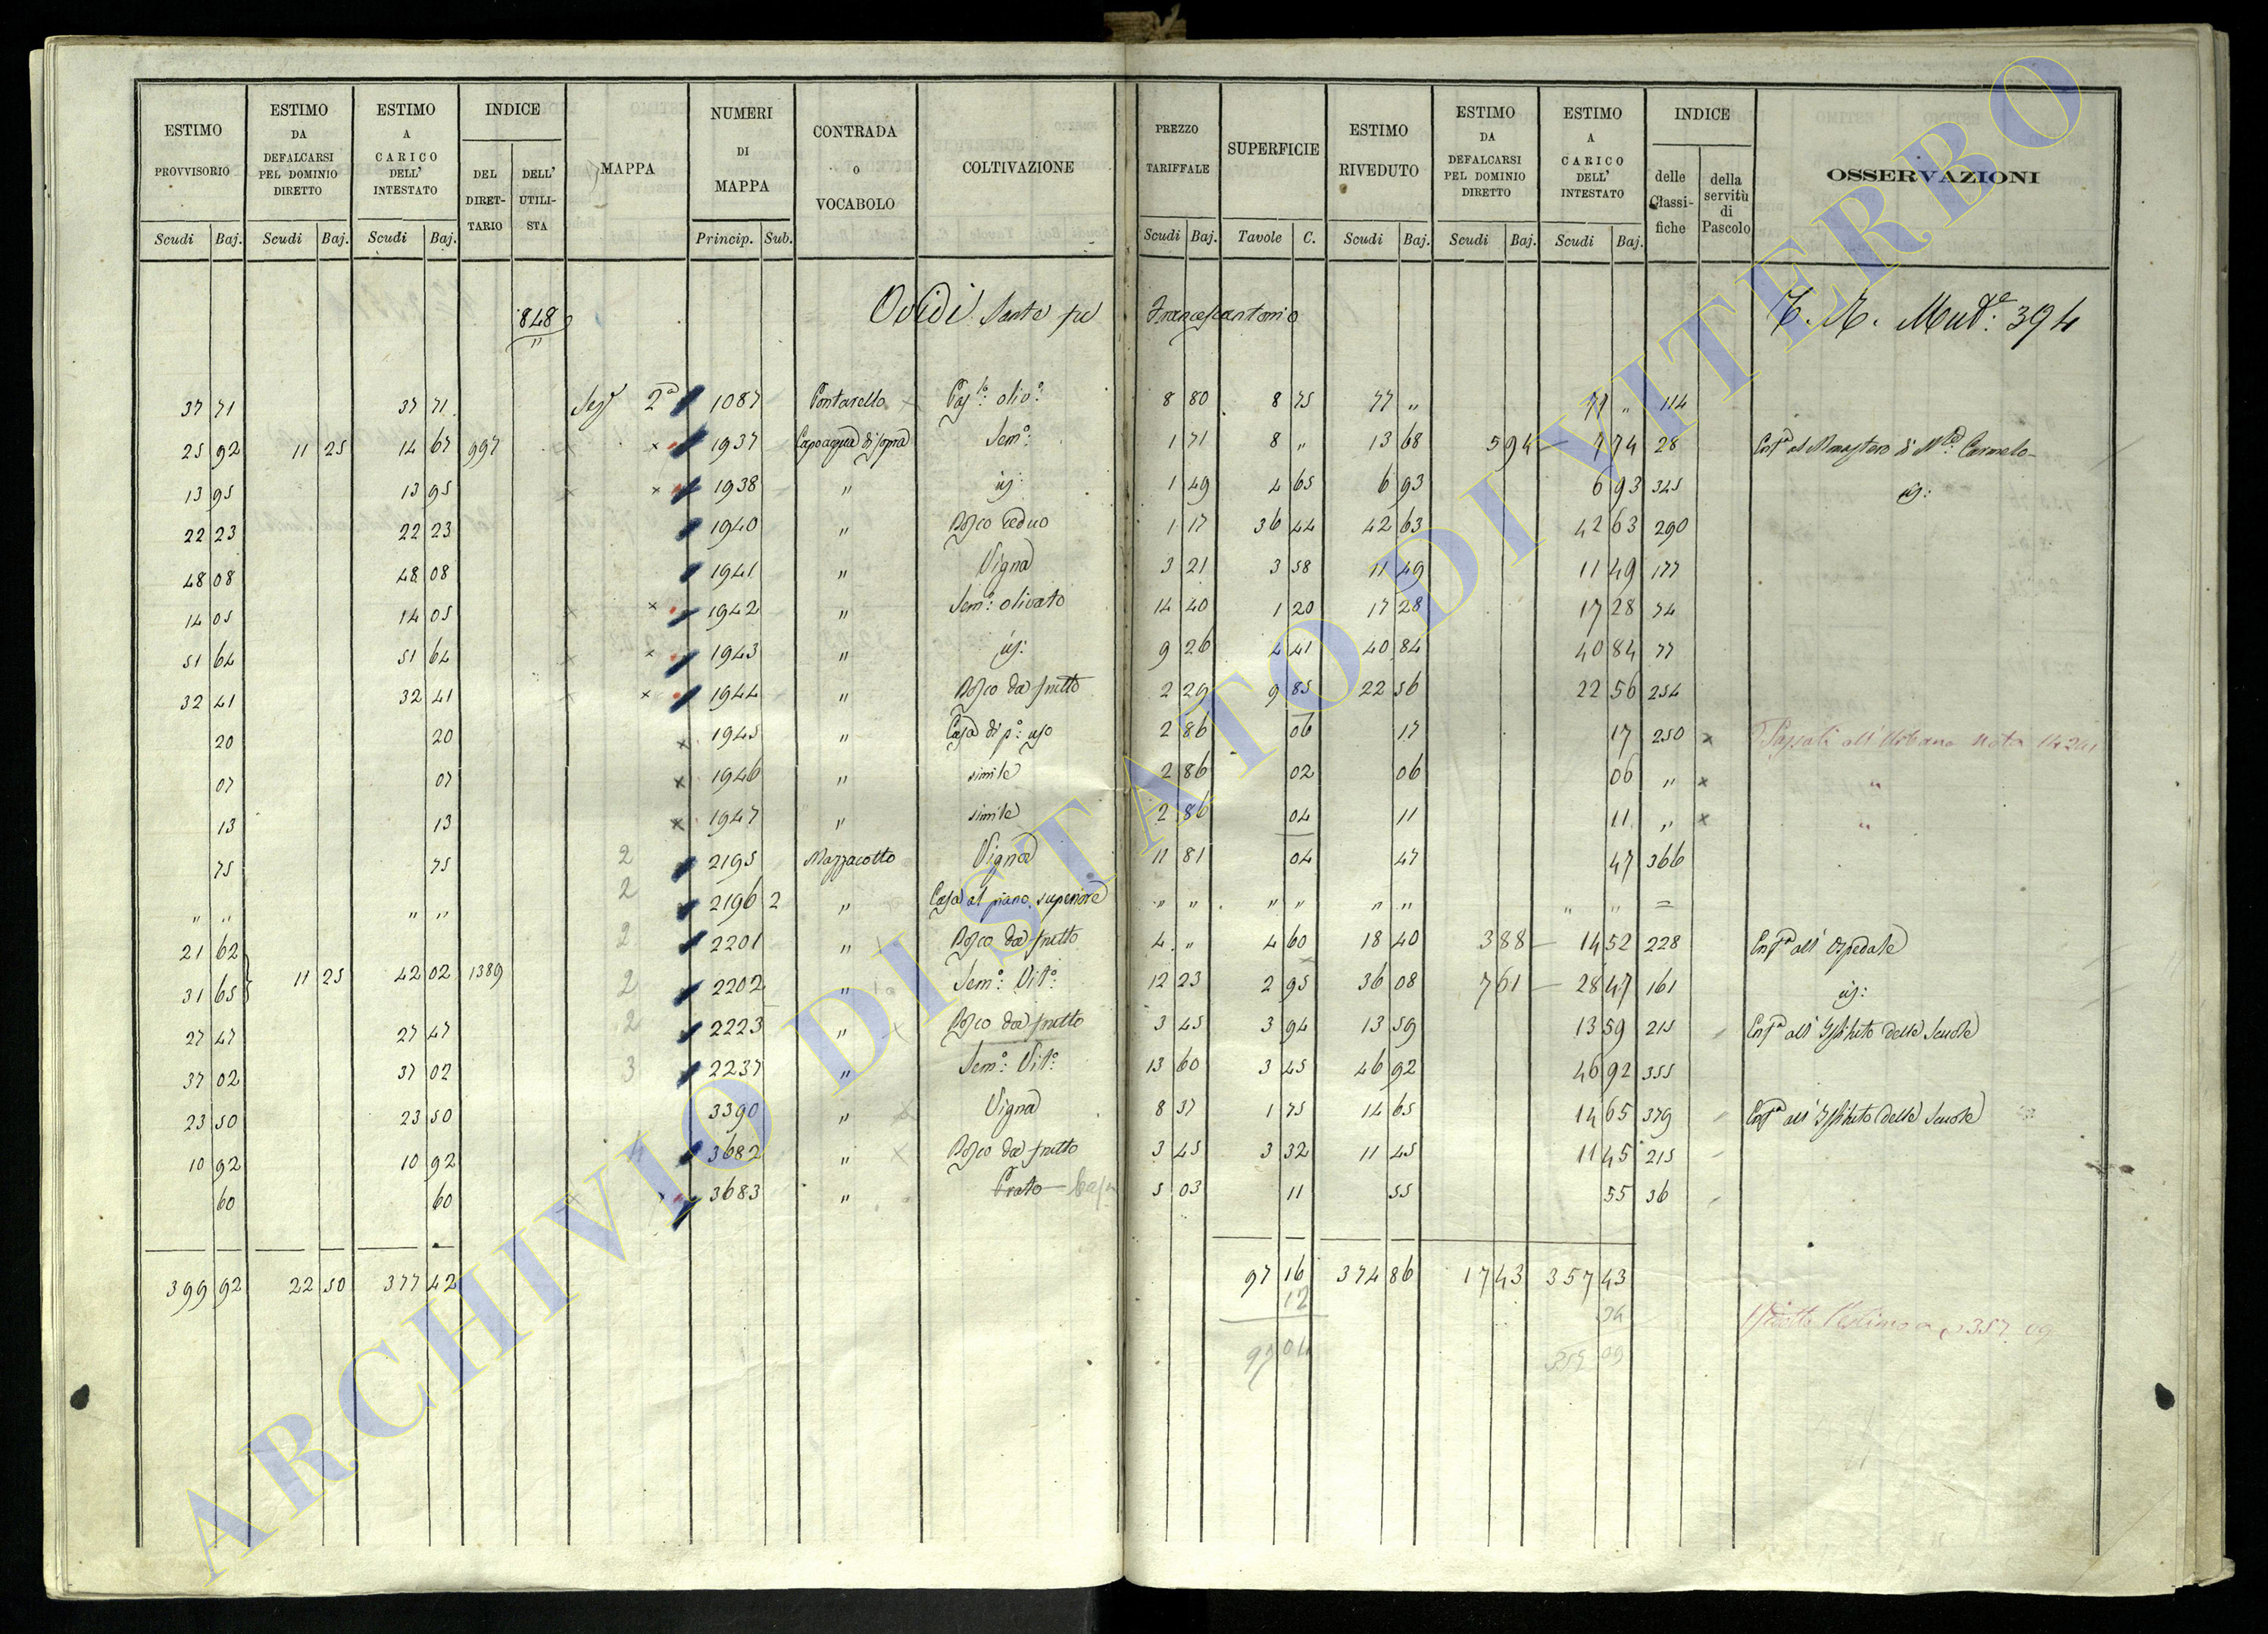 ESTIMO PROVVISORIO | ESTIMO DA DEFALCARSI PEL DOMINIO DIRETTO | ESTIMO A CARICO DELL' INTESTATO | INDICE | MAPPA | NUMERI DI MAPPA | CONTRADA O VOCABOLO | COLTIVAZIONE | PREZZO TARIFFALE | SUPERFICIE | ESTIMO RIVEDUTO | ESTIMO DA DEFALCARSI PEL DOMINIO DIRETTO | ESTIMO A CARICO DELL' INTESTATO | INDICE | OSSERVAZIONI
DEL DIRETTARIO | DELL' UTILISTA | delle Classifiche | della servitù di Pascolo
Scudi | Baj. | Scudi | Baj. | Scudi | Baj. | Princip. | Sub. | Scudi | Baj. | Tavole | C. | Scudi | Baj. | Scudi | Baj. | Scudi | Baj.
848 Ovidi Sante fu Francescantonio 394
37 71 | 37 71 | 2a | 1087 | Pontarello | Pas: oliv: | 8 80 | 8 75 | 77 " | 77 " | 114
25 92 | 11 25 | 14 67 | 997 | x | 1937 | Capoacqua di sopra | Sem: | 1 71 | 8 " | 13 68 | 5 94 | 7 74 | 28 | al Monastero Carmelo
13 95 | 13 95 | x | 1938 | " | id: | 1 49 | 4 65 | 6 93 | 6 93 | 345 | id:
22 23 | 22 23 | 1940 | " | Bosco ceduo | 1 17 | 36 44 | 42 63 | 42 63 | 290
48 08 | 48 08 | 1941 | " | Vigna | 3 21 | 3 58 | 11 49 | 11 49 | 177
14 05 | 14 05 | x | 1942 | " | Sem: olivato | 14 40 | 1 20 | 17 28 | 17 28 | 74
51 64 | 51 64 | x | 1943 | " | id: | 9 26 | 4 41 | 40 84 | 40 84 | 77
32 41 | 32 41 | x | 1944 | " | Bosco da frutto | 2 29 | 9 85 | 22 56 | 22 56 | 254
20 | 20 | x | 1945 | " | Casa di p: uso | 2 86 | 06 | 17 | 17 | 250 | x | Passati all'Urbano Nota
07 | 07 | x | 1946 | " | simile | 2 86 | 02 | 06 | 06 | " | x | "
13 | 13 | x | 1947 | " | simile | 2 86 | 04 | 11 | 11 | " | x | "
75 | 75 | 2 | 2195 | Mazzacotto | Vigna | 11 81 | 04 | 47 | 47 | 366
" " | " " | 2 | 2196 2 | " | Casa al piano superiore | " " | " " | " " | " " | =
21 62 | 2 | 2201 | " | Bosco da frutto | 4 " | 4 60 | 18 40 | 3 88 | 14 52 | 228 | all'Ospedale
31 65 | 11 25 | 42 02 | 1389 | 2 | 2202 | " | Sem: Vit: | 12 23 | 2 95 | 36 08 | 7 61 | 28 47 | 161 | id:
27 47 | 27 47 | 2 | 2223 | " | Bosco da frutto | 3 45 | 3 94 | 13 59 | 13 59 | 215 | all'Istituto delle Scuole
37 02 | 37 02 | 3 | 2237 | " | Sem: Vit: | 13 60 | 3 45 | 46 92 | 46 92 | 355
23 50 | 23 50 | 3390 | " | Vigna | 8 37 | 1 75 | 14 65 | 14 65 | 379 | all'Istituto delle Scuole
10 92 | 10 92 | 3682 | " | Bosco da frutto | 3 45 | 3 32 | 11 45 | 11 45 | 215
60 | 60 | 3683 | " | Prato | 5 03 | 11 | 55 | 55 | 36
399 92 | 22 50 | 377 42 | 97 16 | 374 86 | 17 43 | 357 43
12 | 34
97 04 | 09
ARCHIVIO DI STATO DI VITERBO